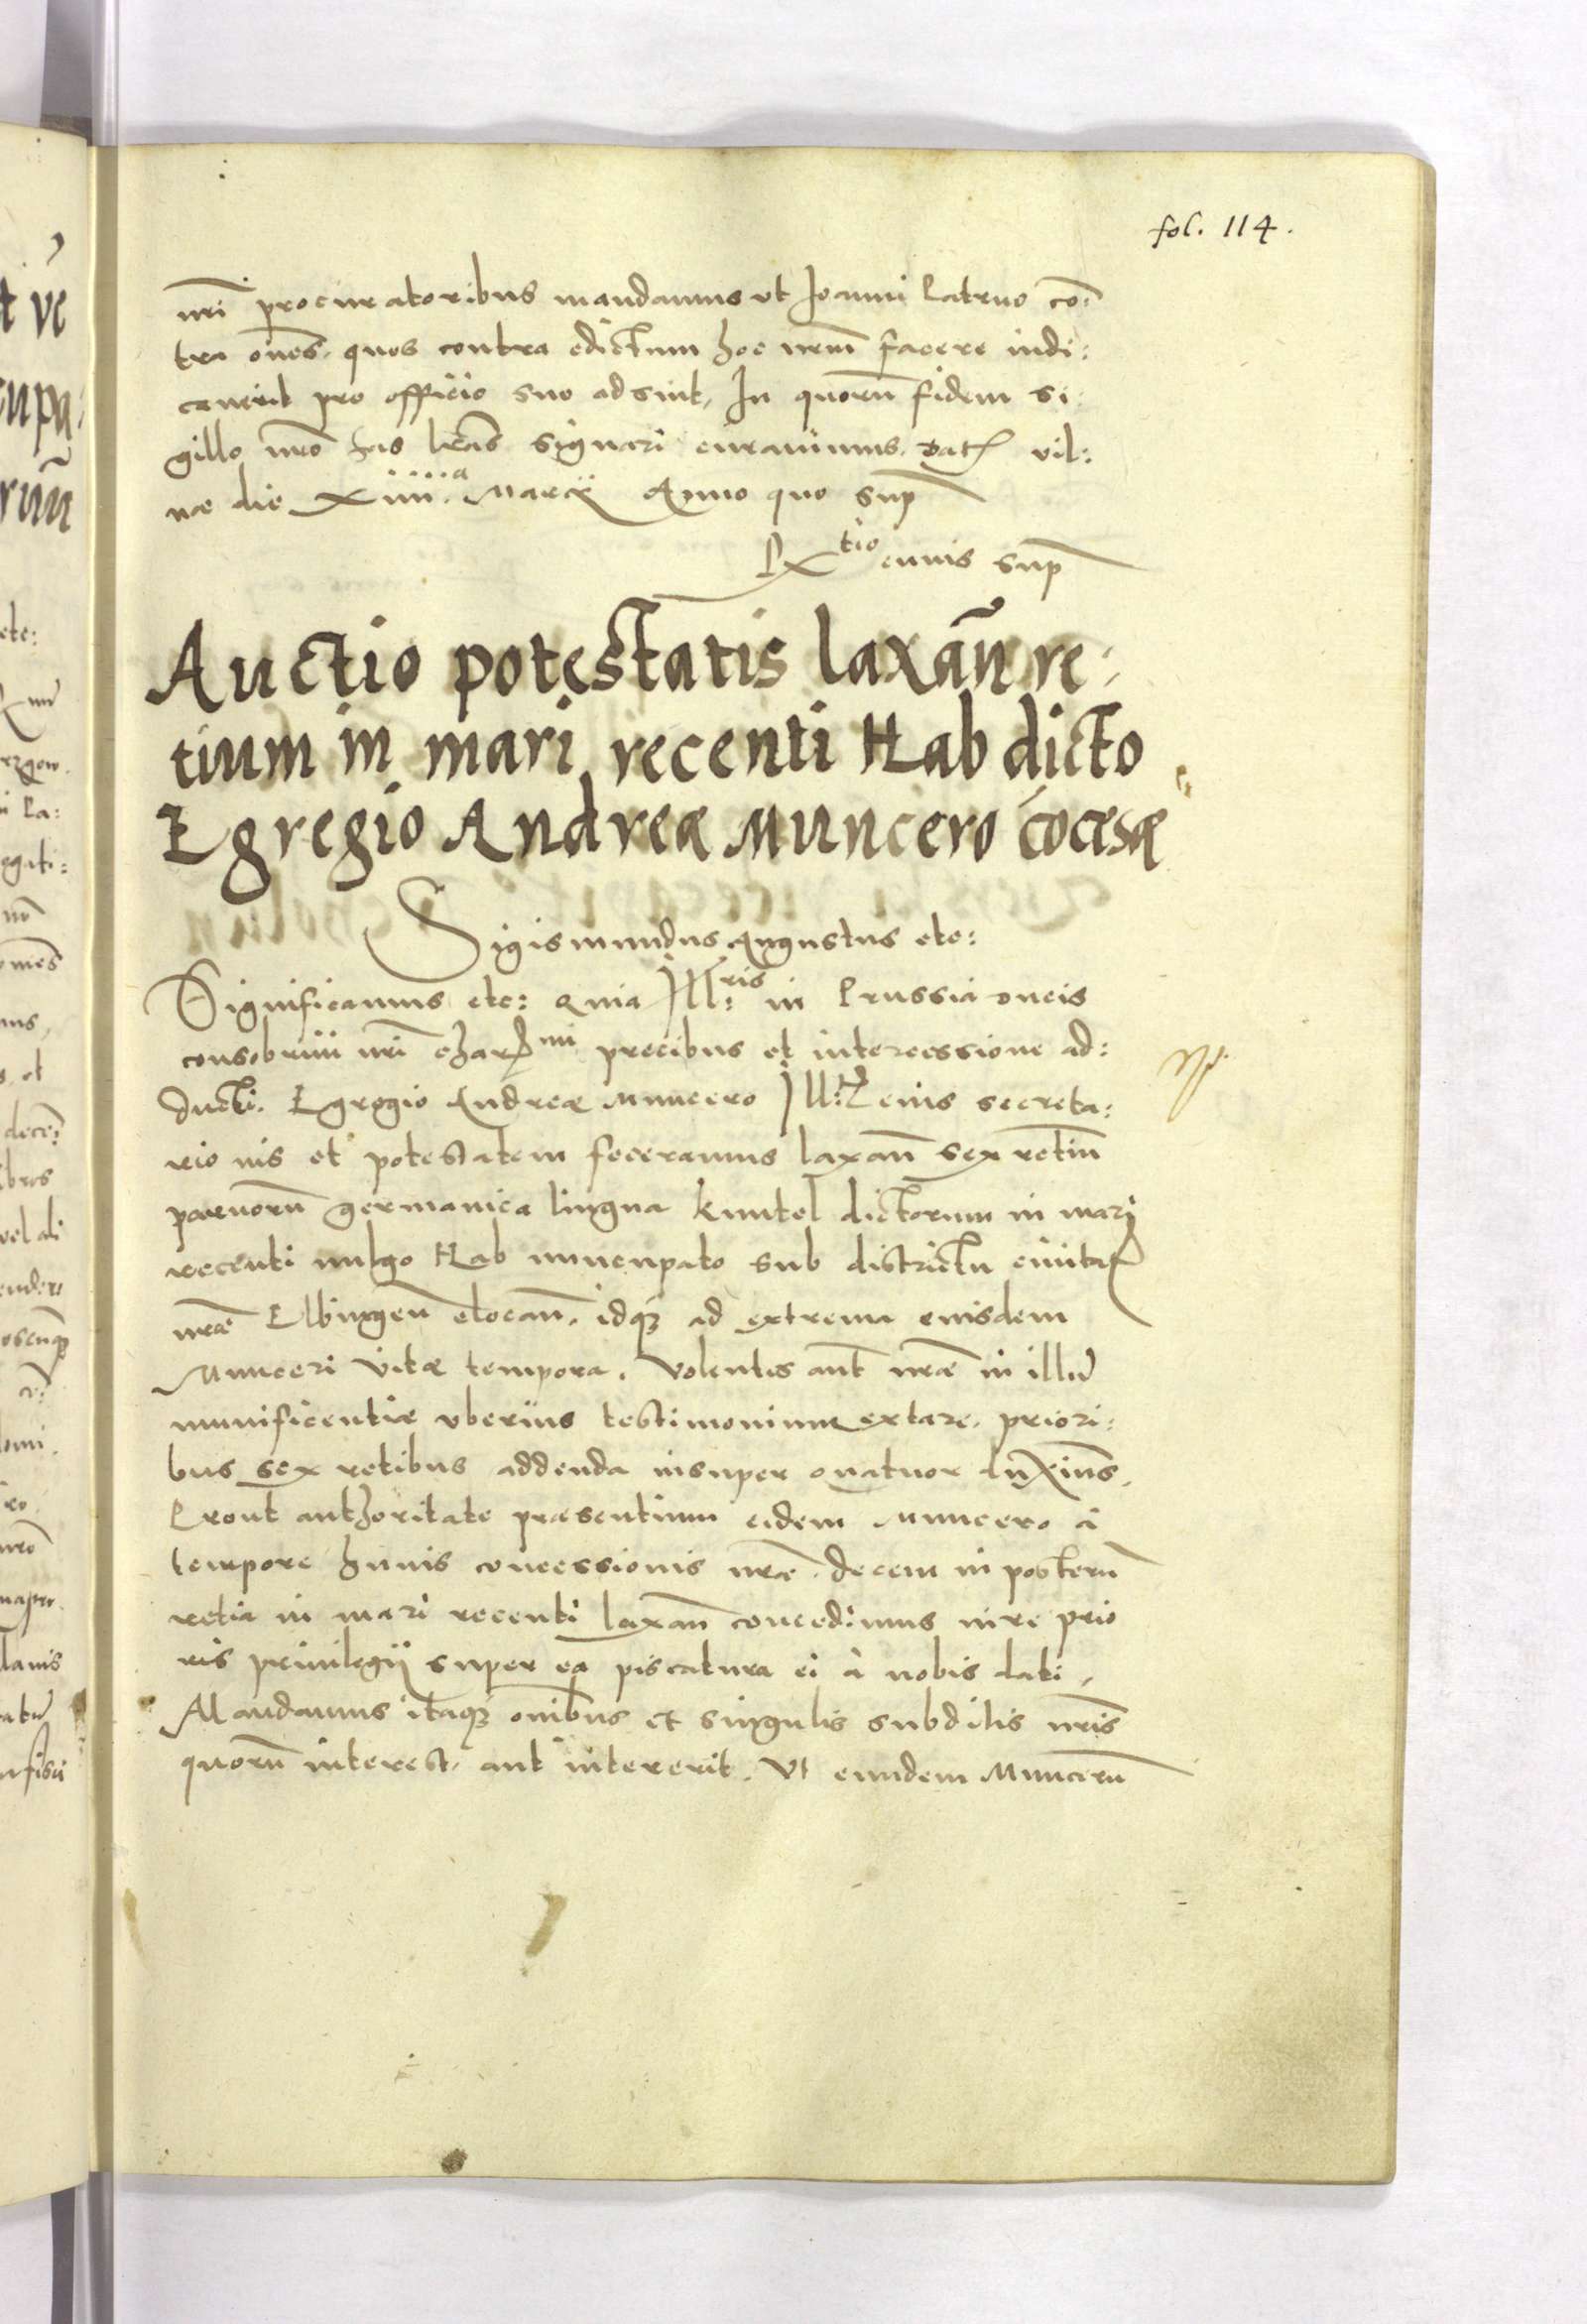 fol. 114.
nr̃i procuratoribus mandamus ut Joanni Patruo co:
tra om̃es, quos contra edictum hoc nr̃um facere indi:
caverit pro officio suo adsint, In quorũ fidem si:
gillo nr̃o has l̃ras signari curavimus. Dat vil:
nae die Xiiii.a Marcÿ Anno quo sup
Rxtio cuius sup
Auctio potestatis laxañ re:
tium in mari recenti Hab dicto
Egregio Andreæ Muncero cõcessæ
Sigismundus Augustus etc:
Significamus etc: Quia Ill:ris in Prussia Ducis
consobrini nr̃i charmi precibus et intercessione ad:
ducti. Egregio Andreæ Muncero Ill: eius secreta:
rio ius et potestatem feceramus laxañ sex retiũ
parvorũ germanica lingua kuntel dictorum in mari
recenti vulgo Hab nuncupato sub districtu civitat
nr̃ae Elbingeñ elocañ. idq3 ad extrema eiusdem
Munceri vitæ tempora. Volentes aut̃ nr̃ae in illũ
munificentiæ uberius testimonium extare, priori:
bus sex retibus addenda insuper quatuor duximus.
Prout authoritate præsentium eidem Muncero à
tempore huius concessionis nr̃æ. decem in posterũ
retia in mari recenti laxañ concedimus iure prio
ris privilegÿ super ea piscatura ei à nobis dati.
Mandamus itaq3 om̃ibus et singulis subditis nr̃is
quorũ interest, aut intererit. Ut eundem Muncerũ